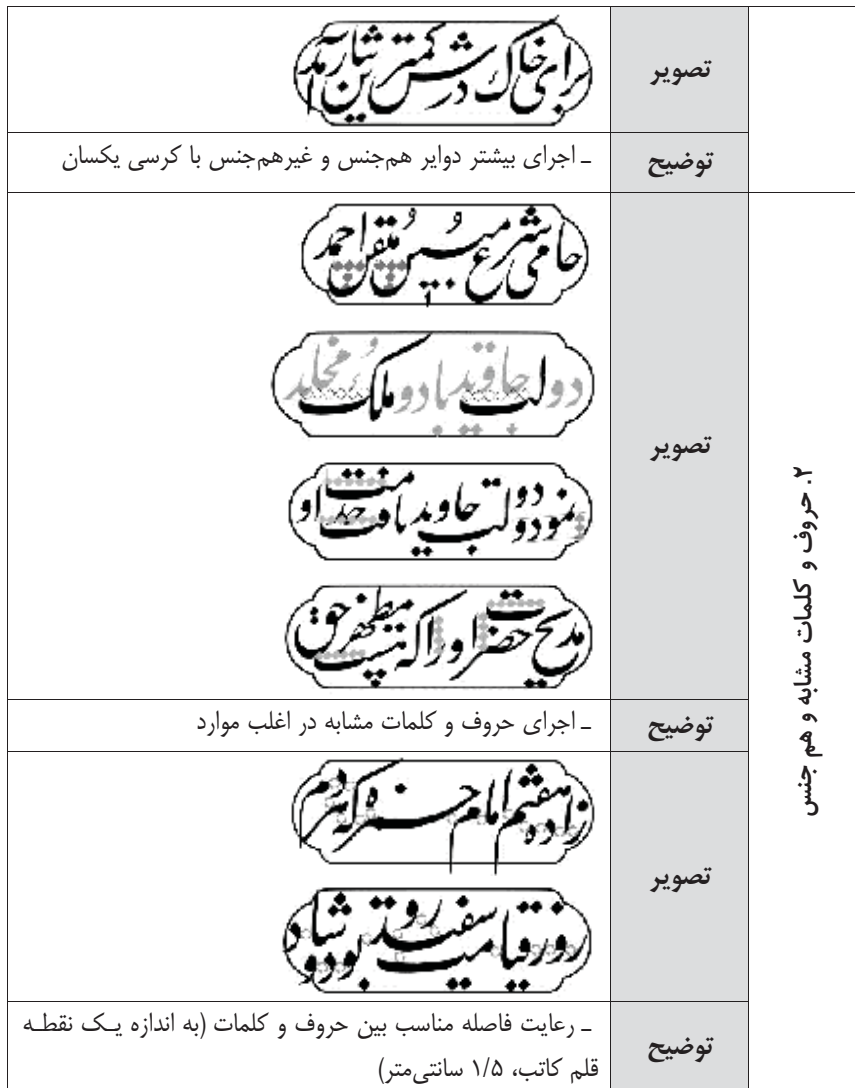 تصویر
برای خاک درش کمترین نثار آمد
توضیح
ـ اجرای بیشتر دوایر هم‌جنس و غیرهم‌جنس با کرسی یکسان
۲. حروف و کلمات مشابه و هم جنس
تصویر
حامی شرع مبین متقن احمد
دولت جاوید بادو ملک مخلد
نمود و دولت جاوید یافت خدمت او
مدیح حضرت او را که نیست مظهر حق
توضیح
ـ اجرای حروف و کلمات مشابه در اغلب موارد
تصویر
زاده هفتم امام حمزه که هر دم
روز قیامت سفید رو بود و شاد
توضیح
ـ رعایت فاصله مناسب بین حروف و کلمات (به اندازه یـک نقطـه
قلم کاتب، ۱/۵ سانتی‌متر)